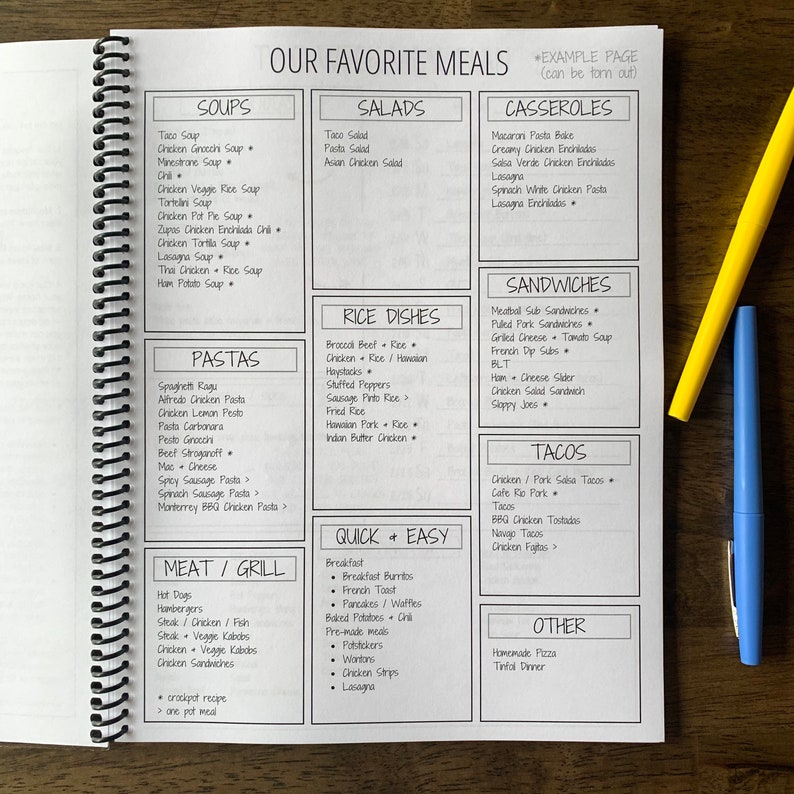 OUR FAVORITE MEALS
*EXAMPLE PAGE
(can be torn out)
SOUPS
Taco Soup
Chicken Gnocchi Soup *
Minestrone Soup *
Chili *
Chicken Veggie Rice Soup
Tortellini Soup
Chicken Pot Pie Soup *
Zupas Chicken Enchilada Chili *
Chicken Tortilla Soup *
Lasagna Soup *
Thai Chicken + Rice Soup
Ham Potato Soup *
PASTAS
Spaghetti Ragu
Alfredo Chicken Pasta
Chicken Lemon Pesto
Pasta Carbonara
Pesto Gnocchi
Beef Stroganoff *
Mac + Cheese
Spicy Sausage Pasta >
Spinach Sausage Pasta >
Monterrey BBQ Chicken Pasta >
MEAT / GRILL
Hot Dogs
Hambergers
Steak / Chicken / Fish
Steak + Veggie Kabobs
Chicken + Veggie Kabobs
Chicken Sandwiches
* crockpot recipe
> one pot meal
SALADS
Taco Salad
Pasta Salad
Asian Chicken Salad
RICE DISHES
Broccoli Beef + Rice *
Chicken + Rice / Hawaiian
Haystacks *
Stuffed Peppers
Sausage Pinto Rice >
Fried Rice
Hawaiian Pork + Rice *
Indian Butter Chicken *
QUICK + EASY
Breakfast
• Breakfast Burritos
• French Toast
• Pancakes / Waffles
Baked Potatoes + Chili
Pre-made meals
• Potstickers
• Wontons
• Chicken Strips
• Lasagna
CASSEROLES
Macaroni Pasta Bake
Creamy Chicken Enchiladas
Salsa Verde Chicken Enchiladas
Lasagna
Spinach White Chicken Pasta
Lasagna Enchiladas *
SANDWICHES
Meatball Sub Sandwiches *
Pulled Pork Sandwiches *
Grilled Cheese + Tomato Soup
French Dip Subs *
BLT
Ham + Cheese Slider
Chicken Salad Sandwich
Sloppy Joes *
TACOS
Chicken / Pork Salsa Tacos *
Cafe Rio Pork *
Tacos
BBQ Chicken Tostadas
Navajo Tacos
Chicken Fajitas >
OTHER
Homemade Pizza
Tinfoil Dinner